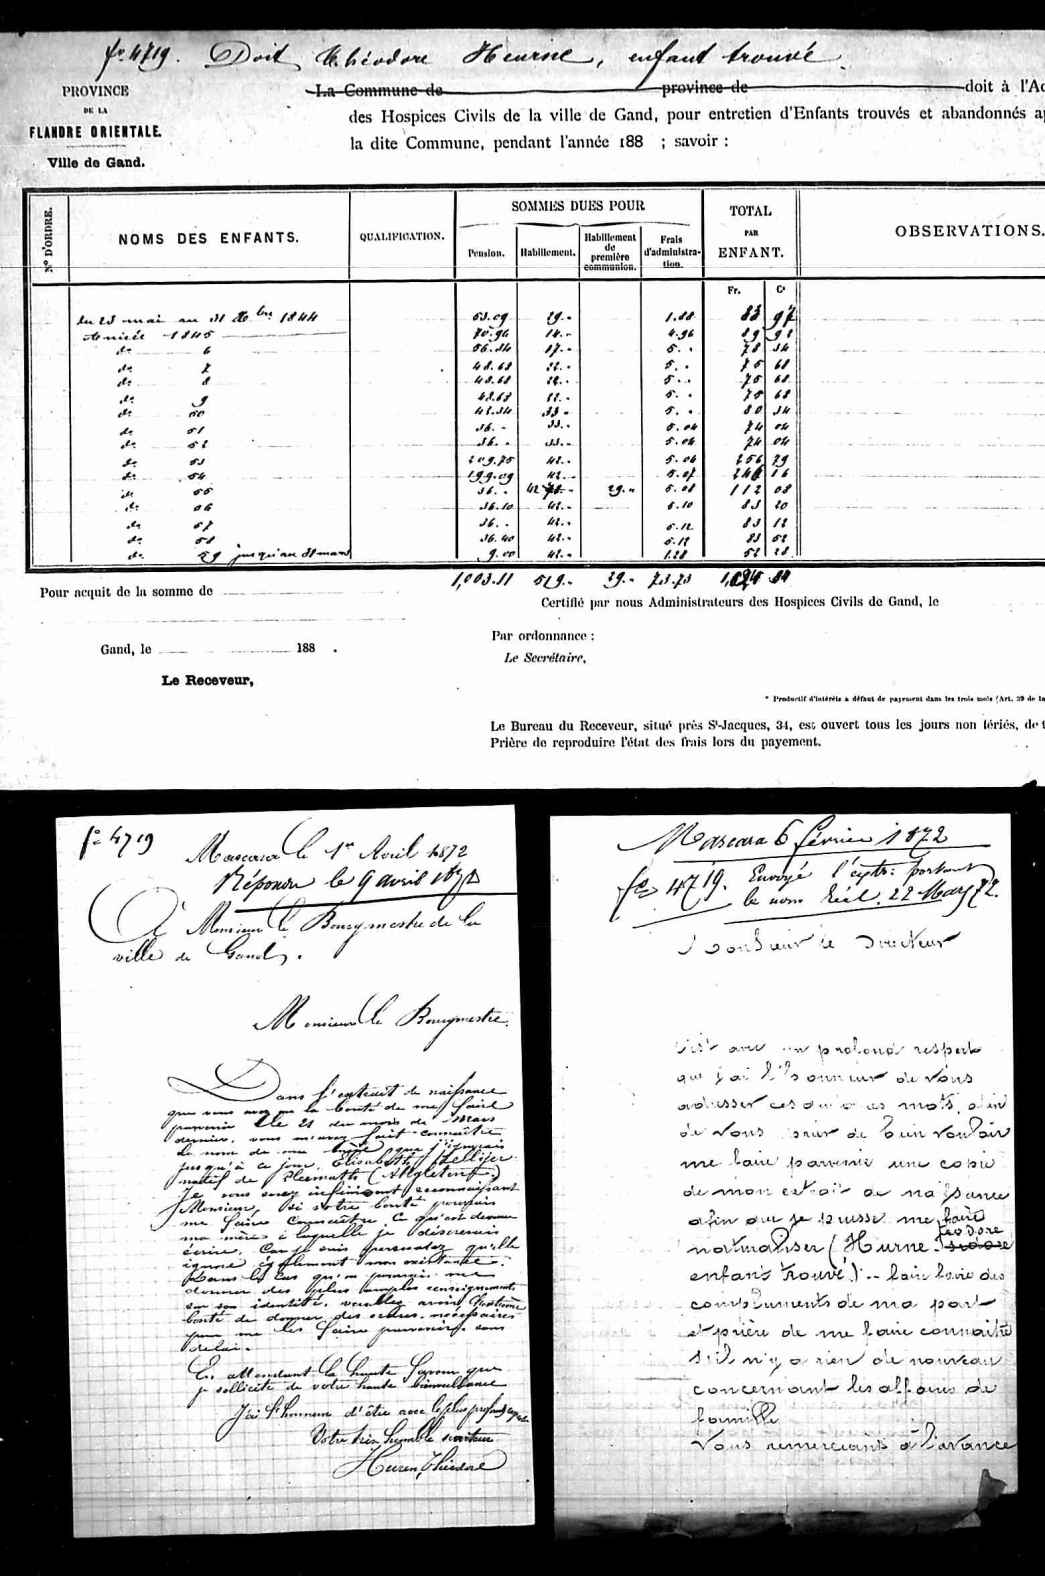 fo 4719. Doit Théodore Heurne, enfant trouvé.
PROVINCE
DE LA
FLANDRE ORIENTALE.
Ville de Gand.
La Commune de province de doit à l'Ad
des Hospices Civils de la ville de Gand, pour entretien d'Enfants trouvés et abandonnés ap
la dite Commune, pendant l'année 188 ; savoir :
N° D'ORDRE.
NOMS DES ENFANTS.
QUALIFICATION.
SOMMES DUES POUR
Pension.
Habillement.
Habillement de première communion.
Frais d'administration.
TOTAL
PAR
ENFANT.
OBSERVATIONS.
Fr. Cs
du 23 mai au 31 Xbre 1844 53.09 29.- 1.88 83 97
Année 1845 70.96 14.- 4.96 89 92
do 6 56.34 17.- 5.- 78 34
do 7 48.68 22.- 5.- 75 68
do 8 48.68 22.- 5.- 75 68
do 9 48.68 22.- 5.- 75 68
do 50 42.34 33.- 5.- 80 34
do 51 36.- 33.- 5.04 74 04
do 52 36.- 33.- 5.04 74 04
do 53 209.75 42.- 5.04 256 79
do 54 199.09 42.- 5.07 246 16
do 55 36.- 42 29.- 5.08 112 08
do 56 36.10 42.- 5.10 83 20
do 57 36.- 42.- 5.12 83 12
do 58 36.40 42.- 5.12 83 52
do 59 jusqu'au 31 mars 9.00 42.- 1.28 52 28
1,003.11 519.- 29.- 73.73
Pour acquit de la somme de
Certifié par nous Administrateurs des Hospices Civils de Gand, le
Par ordonnance :
Gand, le 188 .
Le Secrétaire,
Le Receveur,
* Productif d'intérêts à défaut de payement dans les trois mois (Art. 29 de la
Le Bureau du Receveur, situé près St-Jacques, 34, est ouvert tous les jours non fériés, de
Prière de reproduire l'état des frais lors du payement.
fo 4719
Mascara le 1er Avril 1872
Répondu le 9 avril 1872
A Monsieur le Bourgmestre de la
ville de Gand.
Monsieur le Bourgmestre.
Dans l'extrait de naissance
que vous avez eu la bonté de me faire
parvenir le 21 du mois de Mars
dernier, vous m'avez fait connaître
le nom de ma mère que j'ignorais
jusqu'à ce jour, Elisabeth
natif de Plesmuth (Angleterre)
Je vous serez infiniment reconnaissant
Monsieur, si votre bonté pourrais
me faire connaître, ce qu'est devenue
ma mère à laquelle je désirerais
écrire. Car je suis persuadez qu'elle
ignore également mon existance.
Dans le cas qu'on pourrais me
donner des plus amples renseignements
sur son identité, veuillez avoir
bonté de donner des ordres nécessaires
pour me les faire parvenir, sans
délai.
En attendant la haute faveur que
je sollicite de votre haute bienveillance
J'ai l'honneur d'être avec le plus profond
Votre très humble serviteur
Heuren Théodore
Mascara 6 février 1872
fo 4719. Envoyé l'extr: portant
le nom réel. 22 Mars 72.
Monsieur le Directeur
C'est avec un profond respect
que j'ai l'honneur de vous
adresser ces quoiques mots, afin
de vous prier de bien vouloir
me faire parvenir une copie
de mon extrait de naissance
afin que je puisse me faire
Féodore
naturaliser (Hurne
enfans trouvé).- bien faire des
compliments de ma part
et prière de me faire connaitre
s'il n'y a rien de nouveau
concernant les affaires de
famille
Vous remerciant à l'avance